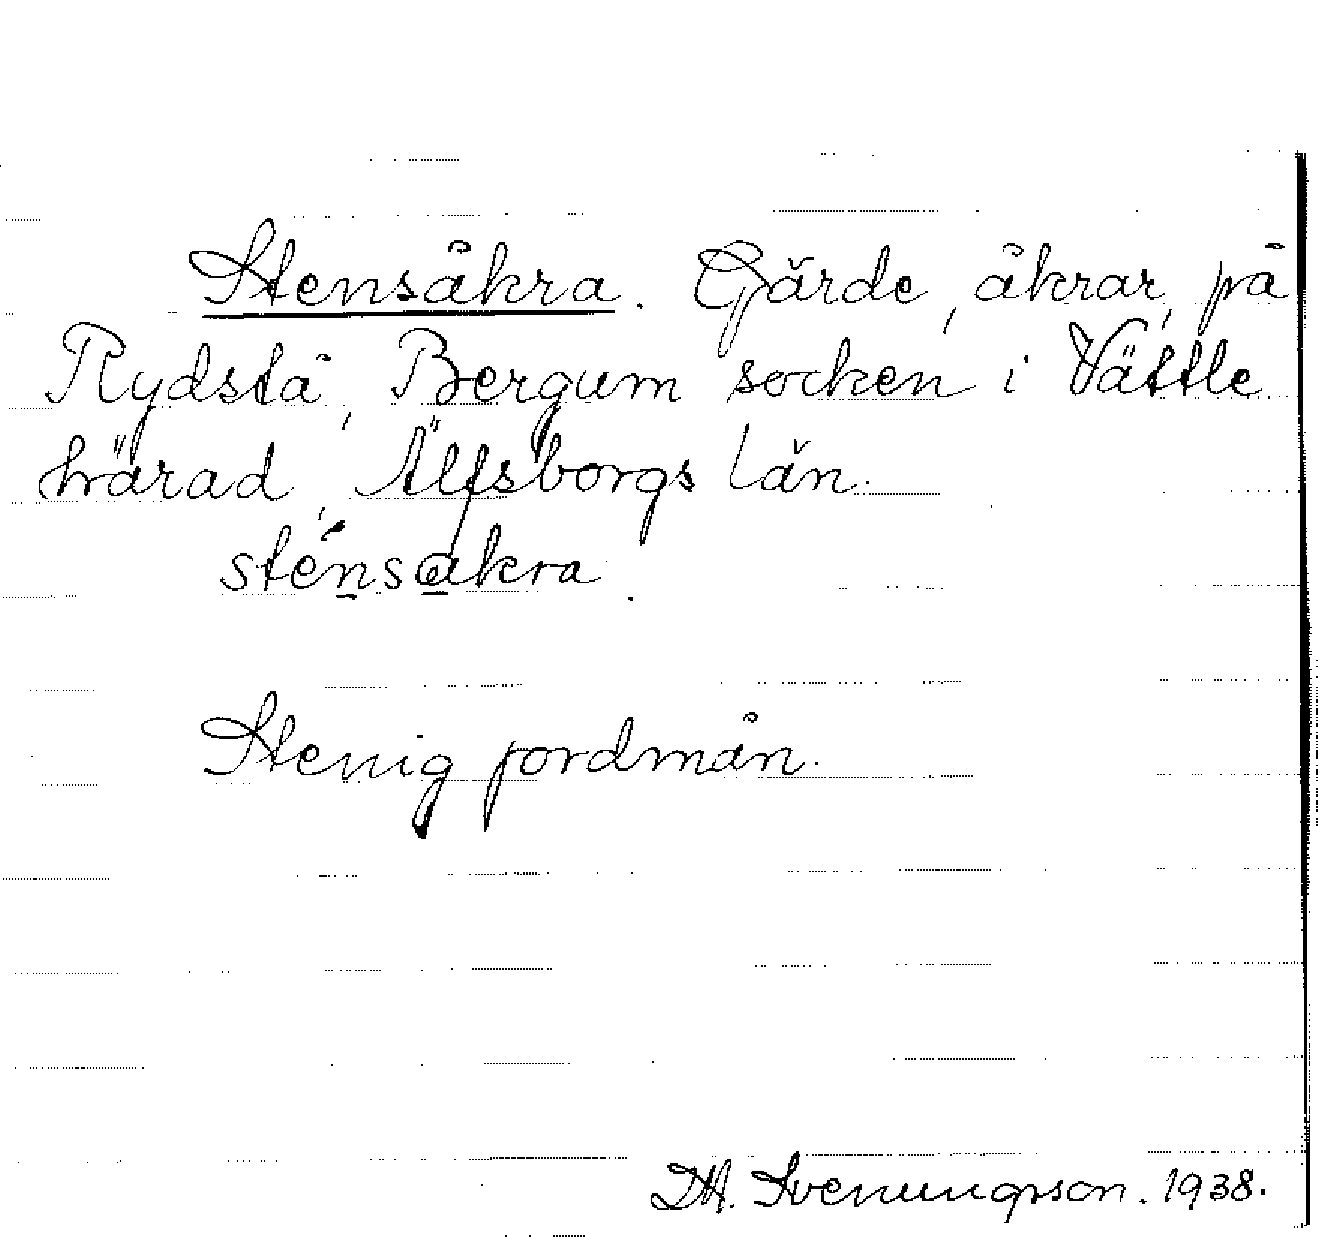 Stensåkra. Gärde, åkrar, på
Rydstå, Bergum socken i Vättle
härad, Älfsborgs län.
sténsakra
Stenig jordmån.
Svenungsson. 1938.